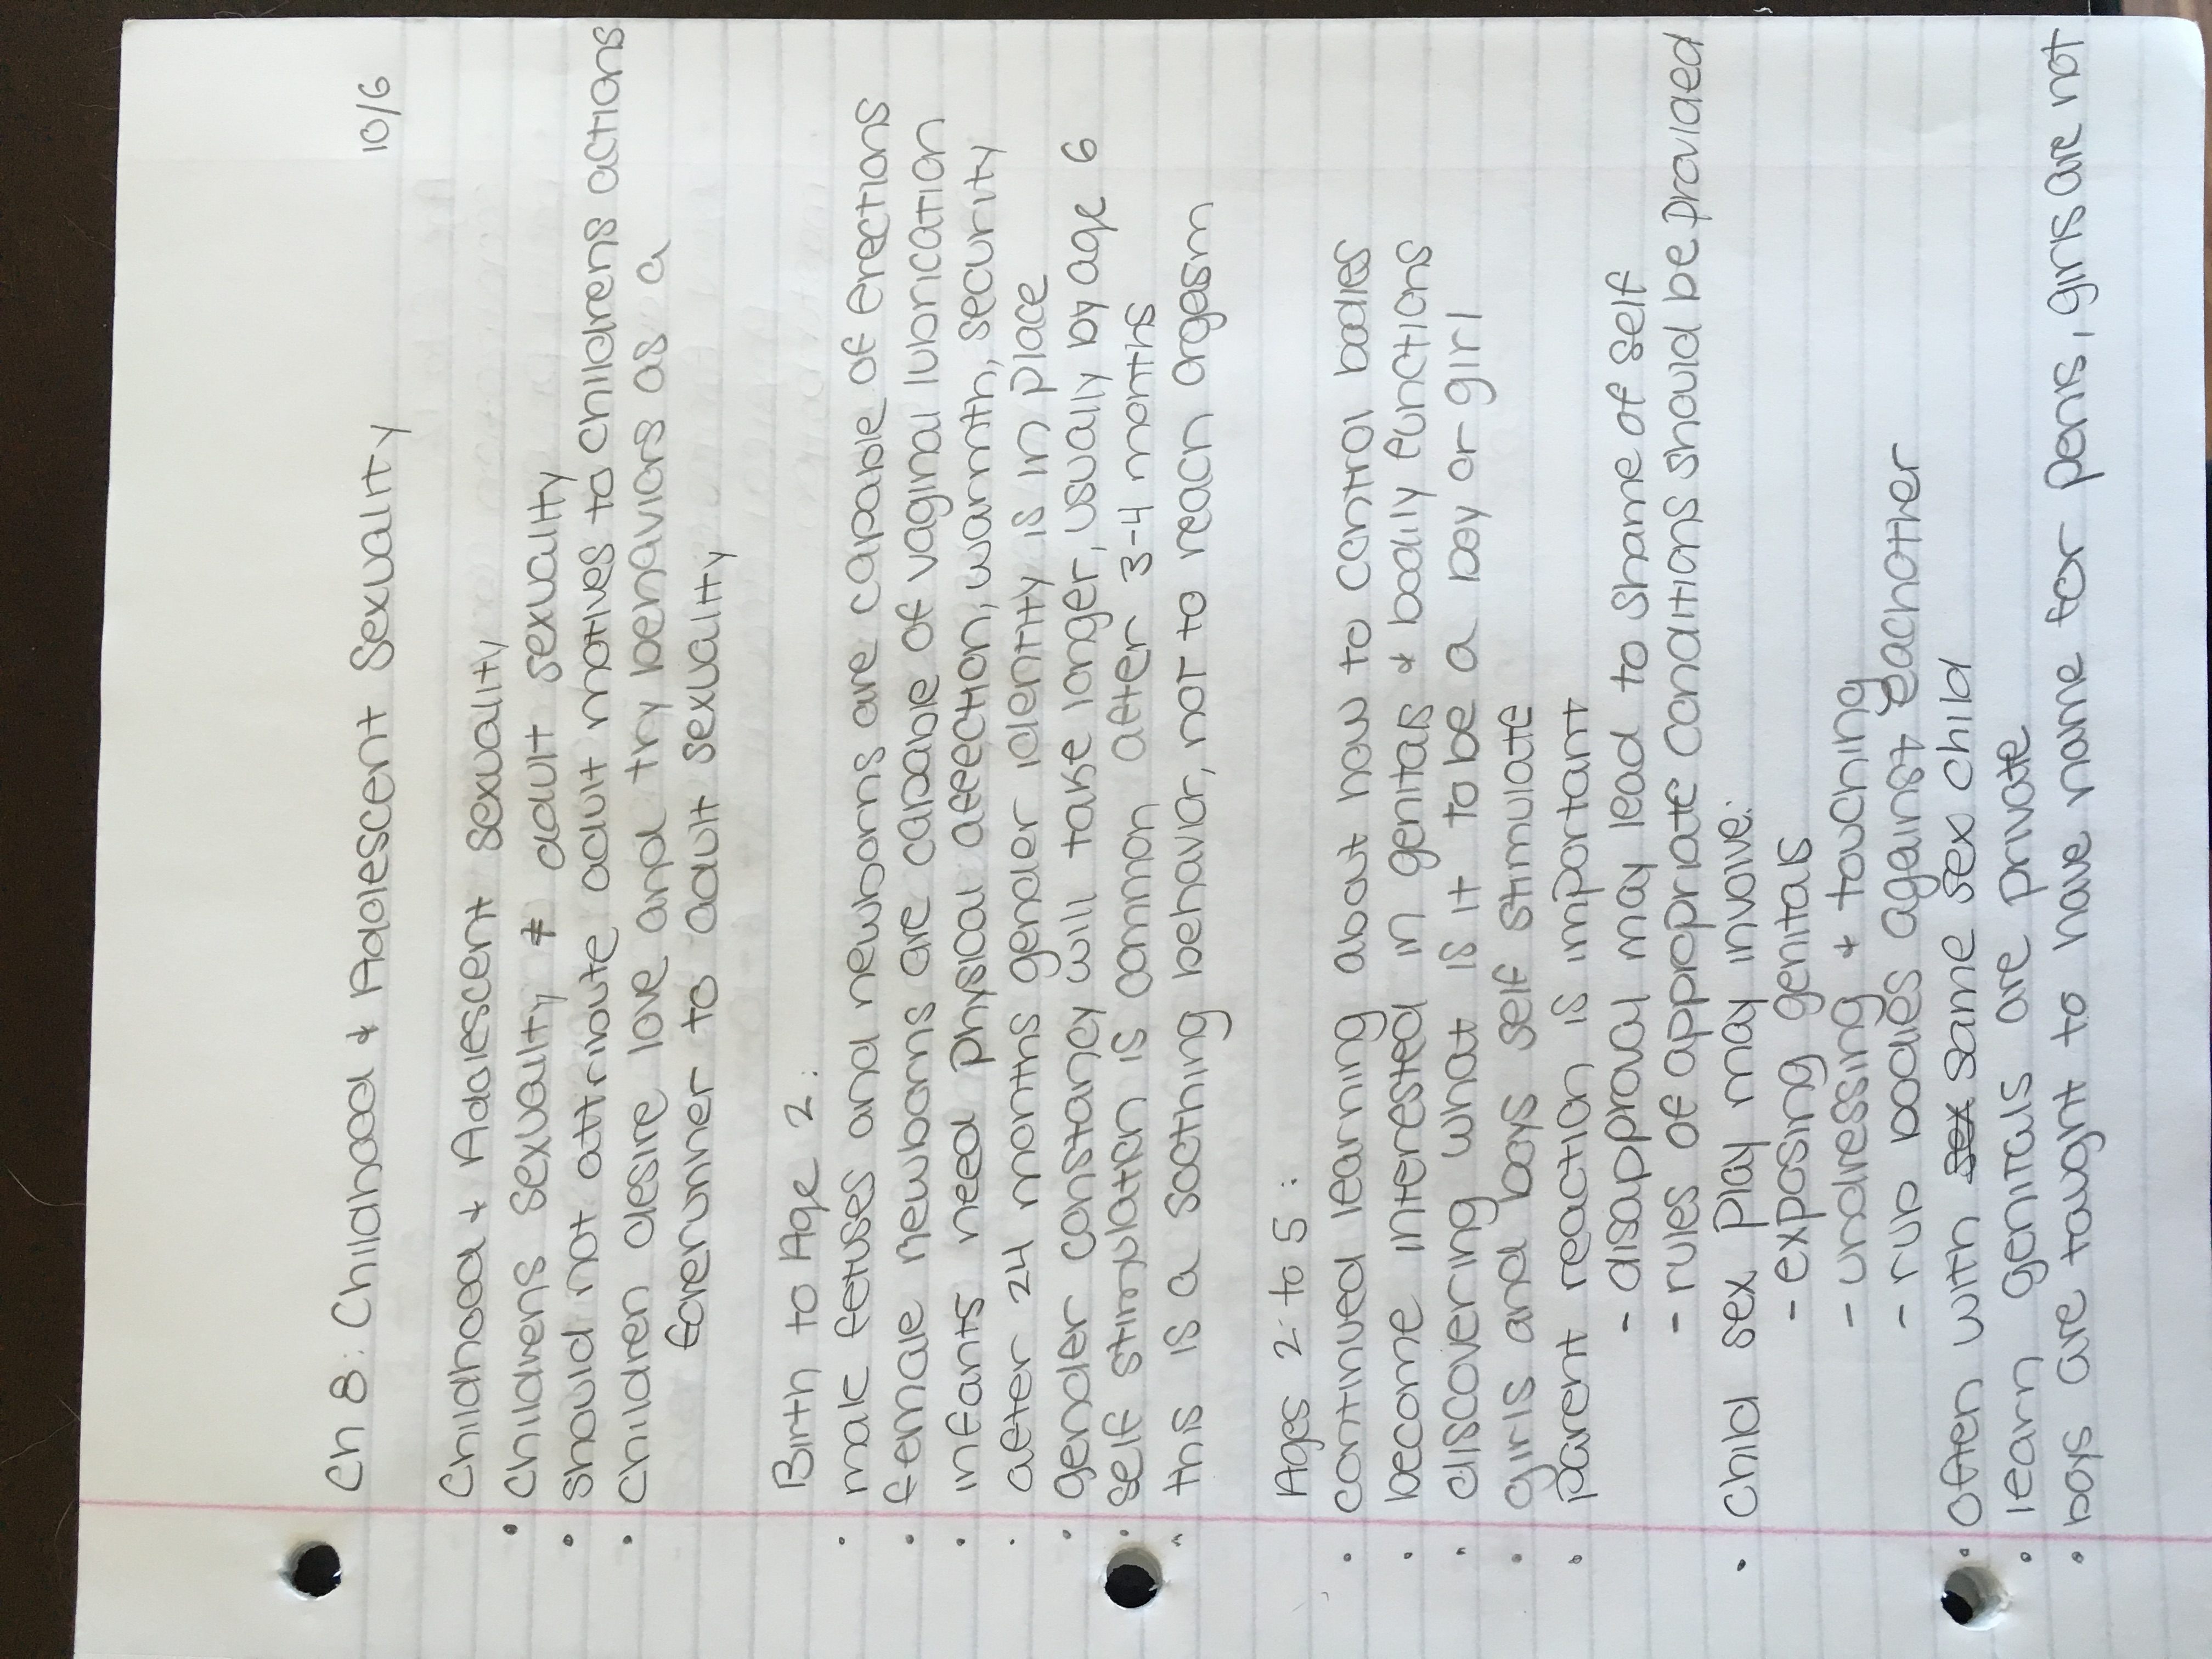 Ch 8: Childhood & Adolescent Sexuality 10/6
Childhood & Adolescent sexuality
• Childrens sexuality ≠ adult sexuality
• should not attribute adult motives to childrens actions
• Children desire love and try behaviors as a
forerunner to adult sexuality
Birth to Age 2:
• male fetuses and newborns are capable of erections
• female newborns are capable of vaginal lubrication
• infants need physical affection, warmth, security
• after 24 months gender identity is in place
• gender constancy will take longer, usually by age 6
• self stimulation is common after 3-4 months
• this is a soothing behavior, not to reach orgasm
Ages 2 to 5:
• continued learning about how to control bodies
• become interested in genitals & bodily functions
• discovering what is it to be a boy or girl
• girls and boys self stimulate
• parent reaction is important
- disapproval may lead to shame of self
- rules of appropriate conditions should be provided
• Child sex play may involve:
- exposing genitals
- undressing & touching
- rub bodies against eachother
• Often with sex same sex child
• learn genitals are private
• boys are taught to have name for penis, girls are not